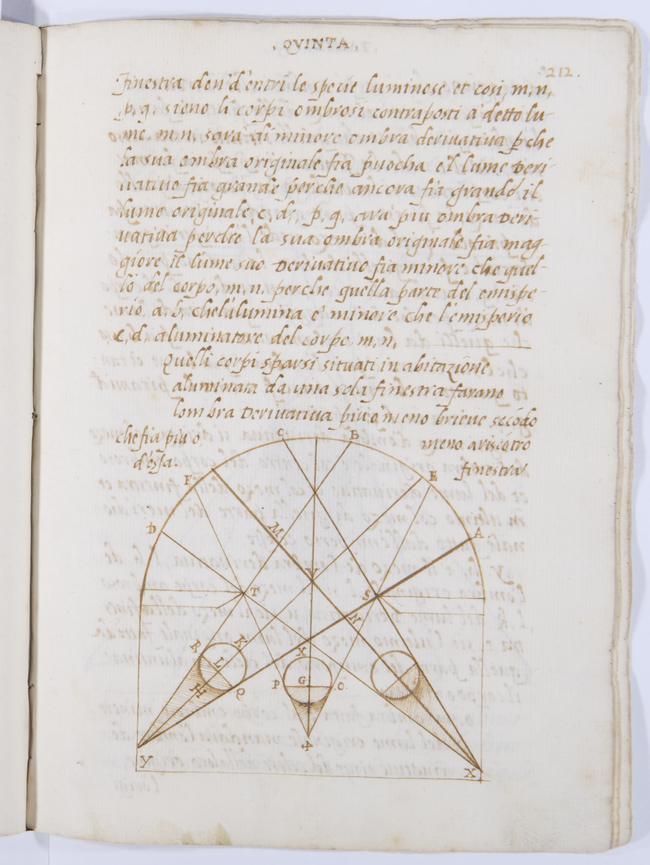 . QVINTA .
212.
finestra don d'entri le spetie luminose et cosi, m, n,
p, q, sieno li corpi ombrosi contraposti à detto lu-
me, m, n, sara di minore ombra derivativa p che
la sua ombra originale fia puocha e'l lume deri-
vativo fia grande perche ancora fia grande il
lume originale, c, d, p, q, ara piu ombra deri-
vativa perche la sua ombra originale fia mag-
giore il lume suo derivativo fia minore che quel-
lo del corpo, m, n, perche quella parte del emispe-
rio, a, b, che l'alumina e' minore che l'emisperio
c, d, aluminatore del corpo m, n,
Quelli corpi sparsi situati in abitazione
aluminata da una sola finestra farano
lombra derivativa piu o meno brieve secōdo
che fia piu o meno a riscōtro
d'essa. finestra
C B
F E
D M A
V
T S
N
R K X
L G
P O
H Q
4
Y X